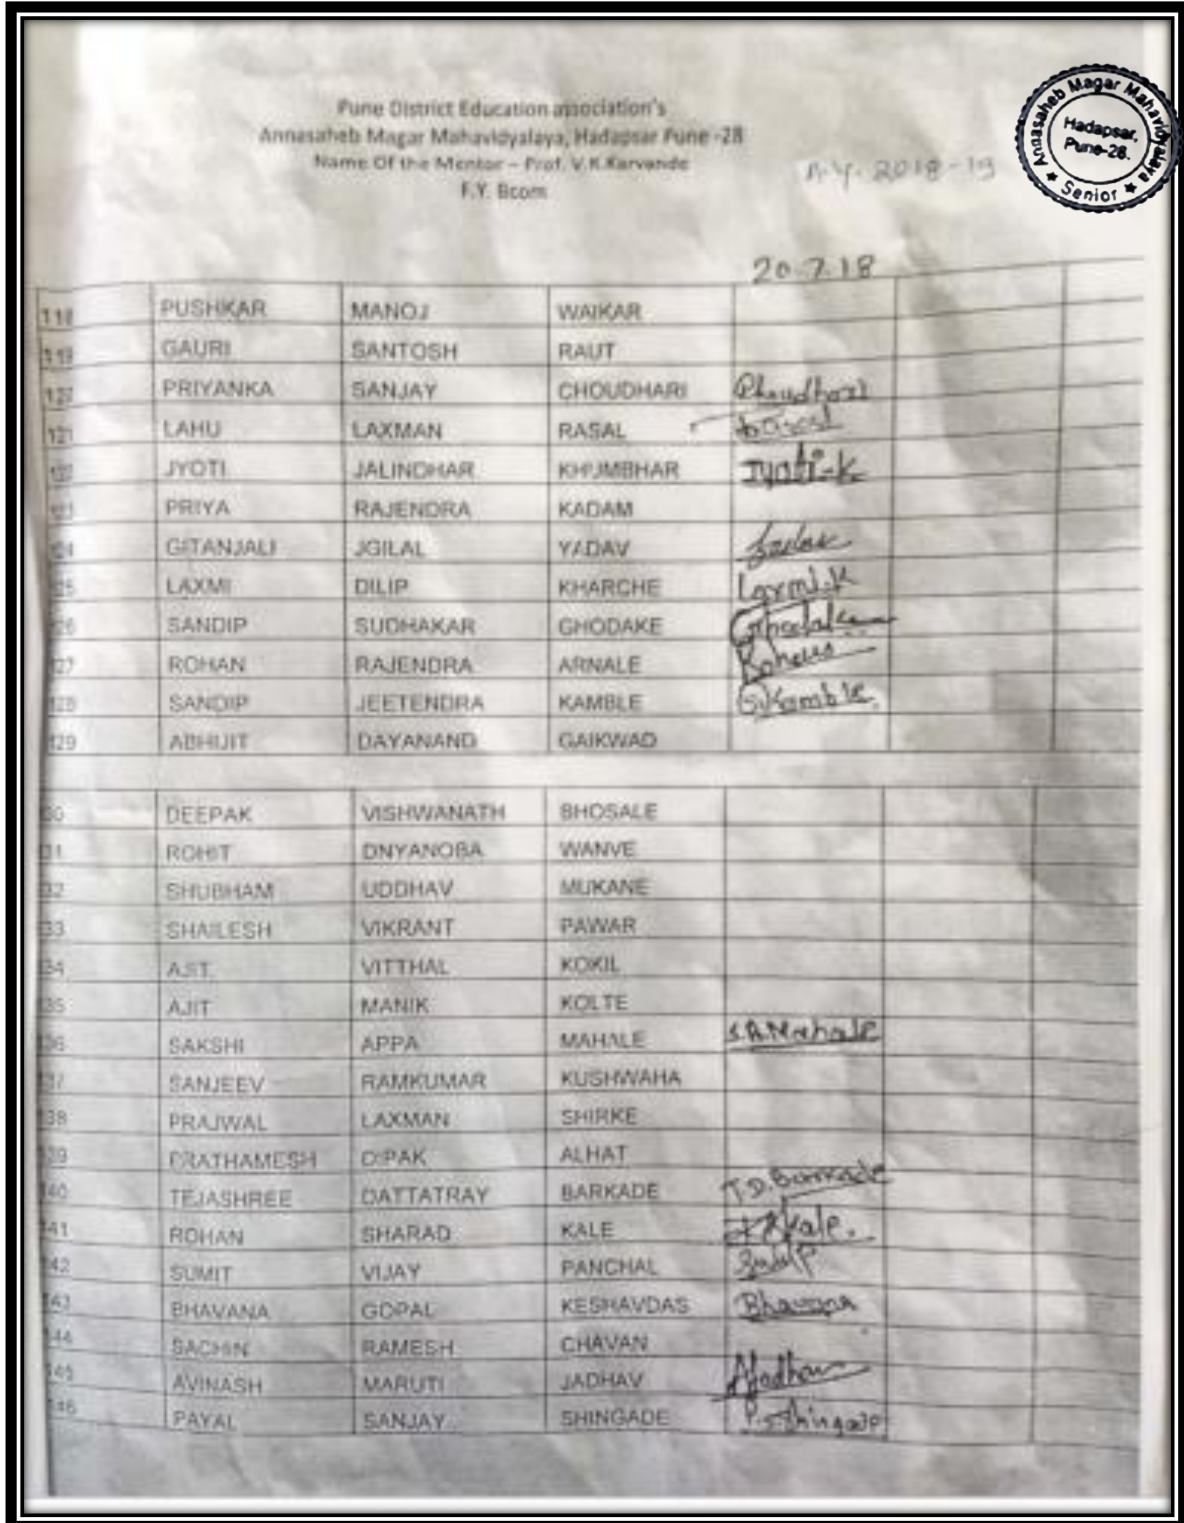 Pune District Education association's
Annasaheb Magar Mahavidyalaya, Hadapsar Pune -28
Name Of the Mentor – Prof. V.K.Karvande
F.Y. Bcom
A.Y. 2018-19
Annasaheb Magar Mahavidyalaya
Hadapsar,
Pune-28.
★ Senior ★
20.7.18
118 PUSHKAR MANOJ WAIKAR
119 GAURI SANTOSH RAUT
120 PRIYANKA SANJAY CHOUDHARI Choudhari
121 LAHU LAXMAN RASAL
122 JYOTI JALINDHAR KHUMBHAR Jyoti-K
123 PRIYA RAJENDRA KADAM
124 GITANJALI JGILAL YADAV
125 LAXMI DILIP KHARCHE Laxmi.K
126 SANDIP SUDHAKAR GHODAKE Ghodake
127 ROHAN RAJENDRA ARNALE
128 SANDIP JEETENDRA KAMBLE S.Kamble
129 ABHIJIT DAYANAND GAIKWAD
30 DEEPAK VISHWANATH BHOSALE
31 ROHIT DNYANOBA WANVE
32 SHUBHAM UDDHAV MUKANE
33 SHAILESH VIKRANT PAWAR
34 AJIT VITTHAL KOKIL
135 AJIT MANIK KOLTE
136 SAKSHI APPA MAHALE S.A.Mahale
137 SANJEEV RAMKUMAR KUSHWAHA
138 PRAJWAL LAXMAN SHIRKE
139 PRATHAMESH DIPAK ALHAT
140 TEJASHREE DATTATRAY BARKADE T.D.Barkade
141 ROHAN SHARAD KALE
142 SUMIT VIJAY PANCHAL
143 BHAVANA GOPAL KESHAVDAS Bhavana
144 SACHIN RAMESH CHAVAN
145 AVINASH MARUTI JADHAV AJadhav
146 PAYAL SANJAY SHINGADE P.S.Shingade